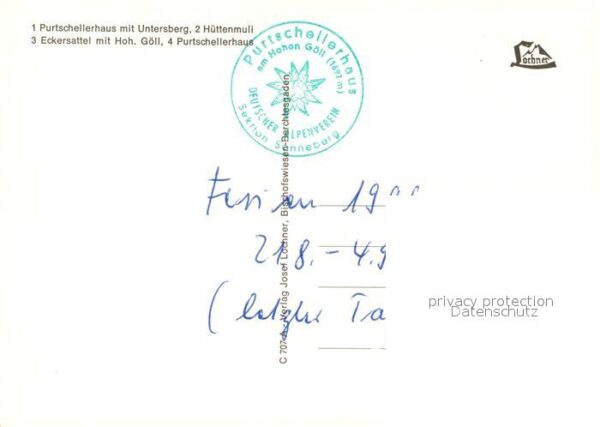 1 Purtschellerhaus mit Untersberg, 2 Hüttenmuli
3 Eckersattel mit Hoh. Göll, 4 Purtschellerhaus
Purtschellerhaus
am Hohen Göll (1692 m)
DEUTSCHER ALPENVEREIN
Sektion Sonneberg
Lochner
Verlag Josef Lochner, Bischofswiesen-Berchtesgaden
C 707
Ferien 19
21.8. - 4.9
(letzte Ta
privacy protection
Datenschutz